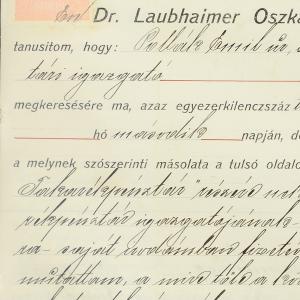 Én Dr. Laubhaimer Oszká
tanusitom, hogy: Pollák Emil úr, a
tári igazgató
megkeresésére ma, azaz egyezerkilenczszáz t
hó második napján, de
a melynek szószerinti másolata a tulsó oldalo
Takarékpénztár" részére
pénztár igazgatójának
saját irodámban fizetés
mutattam, a mire tőle a kö